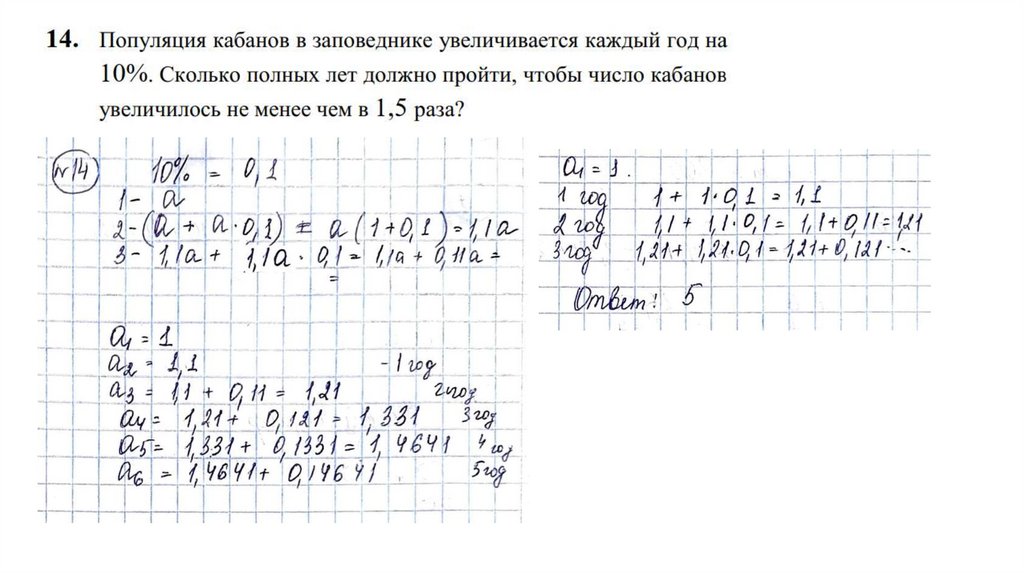 14. Популяция кабанов в заповеднике увеличивается каждый год на
10%. Сколько полных лет должно пройти, чтобы число кабанов
увеличилось не менее чем в 1,5 раза?
№14 10% = 0,1
1- a
2-(a + a·0,1) = a(1+0,1)=1,1a
3- 1,1a + 1,1a · 0,1 = 1,1a + 0,11a =
=
a₁ = 1
a₂ = 1,1 - 1 год
a₃ = 1,1 + 0,11 = 1,21 2 год
a₄ = 1,21 + 0,121 = 1,331 3 год
a₅ = 1,331 + 0,1331 = 1,4641 4 год
a₆ = 1,4641 + 0,14641 5 год
a₁ = 1.
1 год 1 + 1·0,1 = 1,1
2 год 1,1 + 1,1·0,1 = 1,1+0,11=1,21
3 год 1,21 + 1,21·0,1 = 1,21+0,121...
Ответ: 5